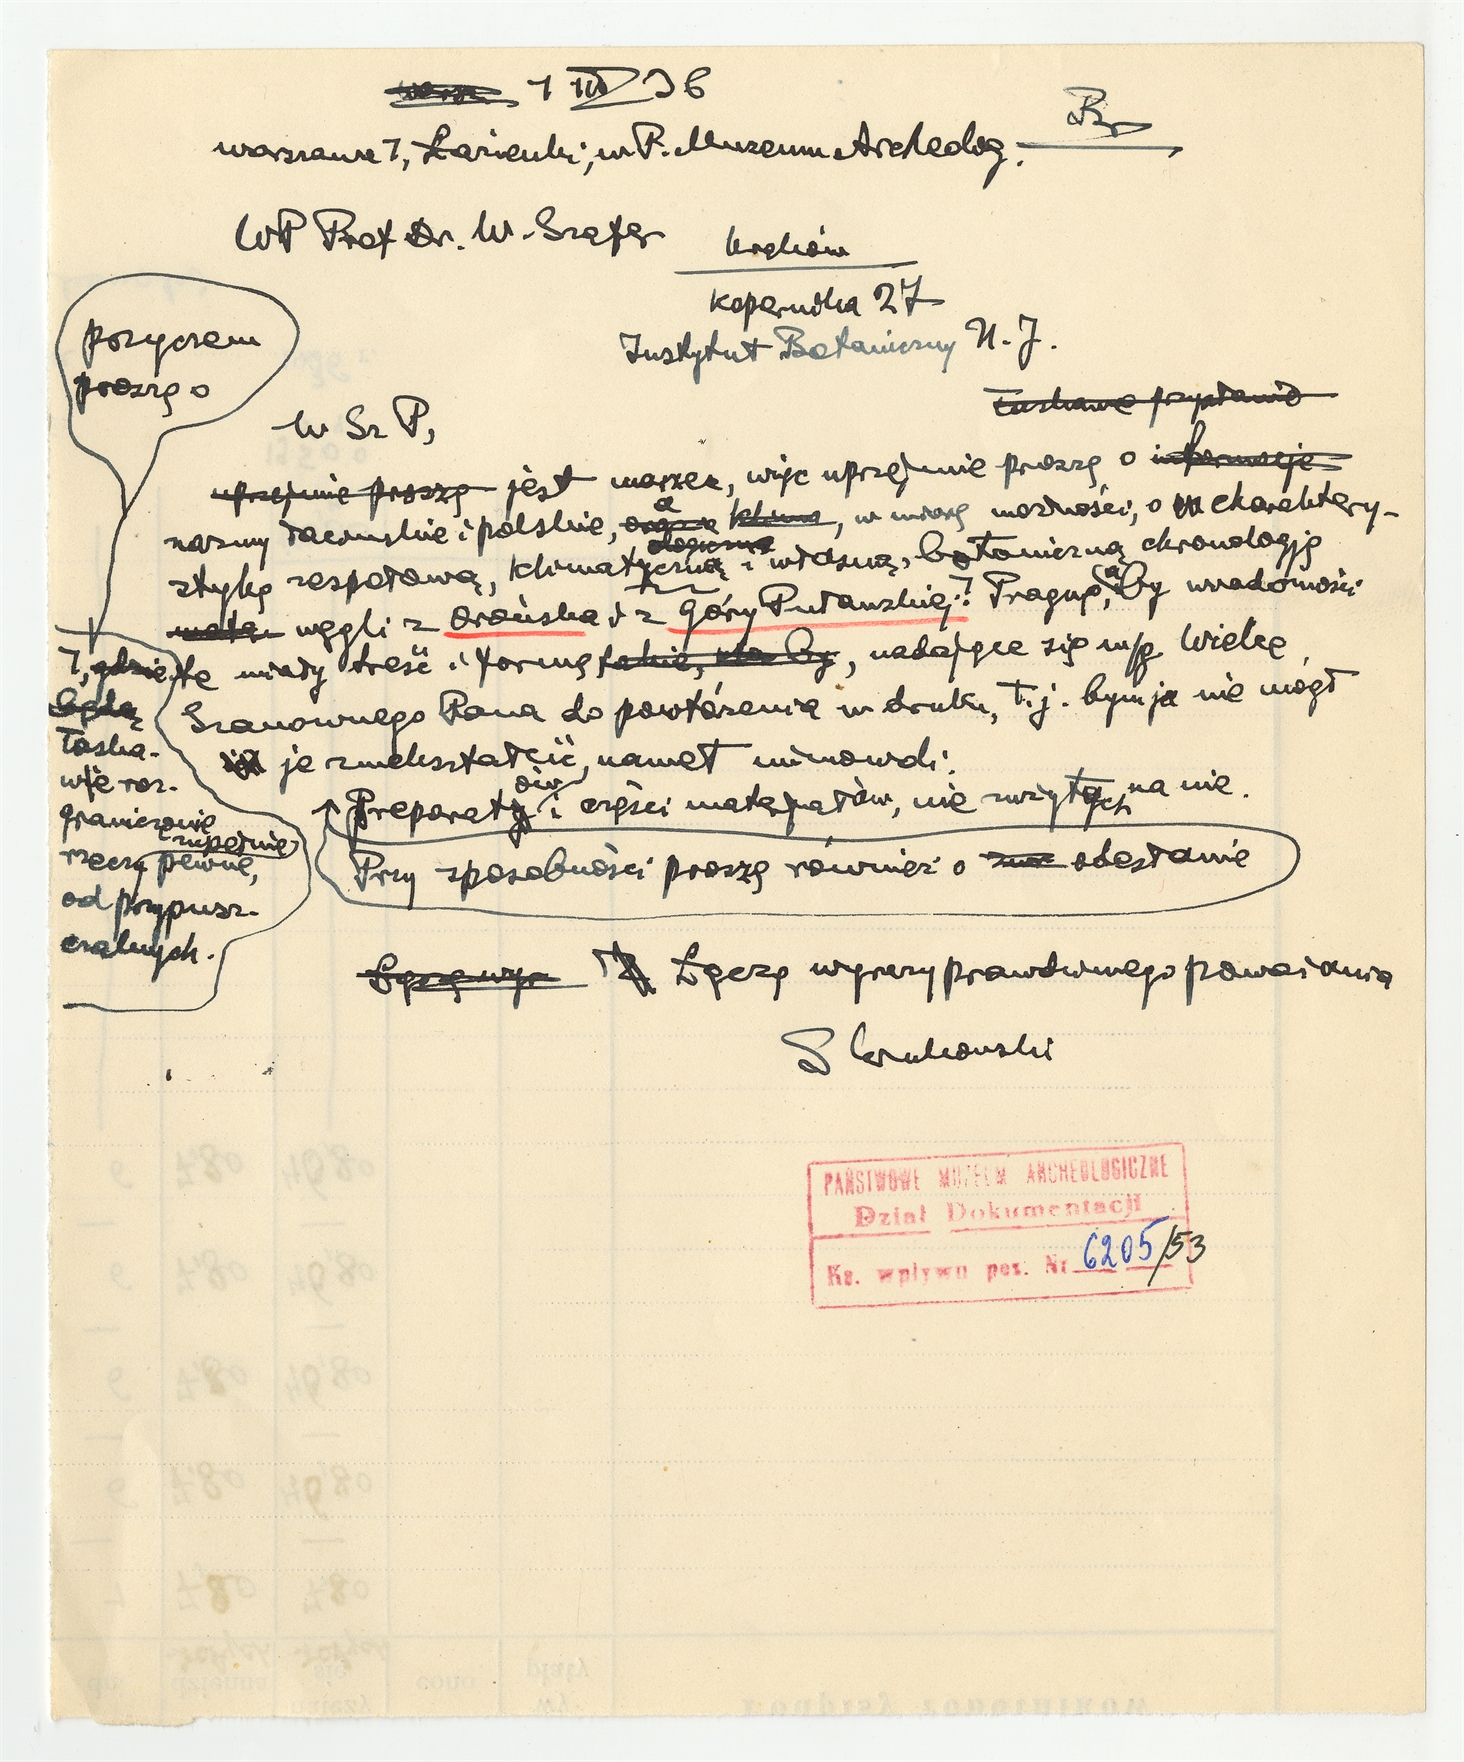 1 III 36
Br
Warszawa 7, Łazienki, w P. Muzeum Archeolog.
WP Prof Dr. W. Szafer
Kraków
Kopernika 27
Instytut Botaniczny U. J.
pozyczem
proszę o
W Sz P,
Łaskawe przysłanie
uprzejmie proszę jest marzec, więc uprzejmie proszę o informacje
nazwy łacińskie i polskie, w miarę możności, o charaktery-
stykę zespołową, klimatyczną i własną, botaniczną chronologję
węgli z Orońska i z Góry Puławskiej. Pragnę, by wiadomości
te miały treść i formę takie, by, nadające się wg. Wielce
Szanownego Pana do powtórzenia w druku, t.j. bym ja nie mógł
je zniekształcić, nawet mimowoli.
7, gdzie
będą
łaska-
wie roz-
graniczenie
rzeczy zupełnie pewne,
od przypusz-
czalnych.
Preparatów i części materjałów, nie zużytych na nie.
Przy sposobności proszę również o odesłanie
Łączę wyr Łączę wyrazy prawdziwego poważania
S Krukowski
PAŃSTWOWE MUZEUM ARCHEOLOGICZNE
Dział Dokumentacji
Ks. wpływu poz. Nr 6205/53